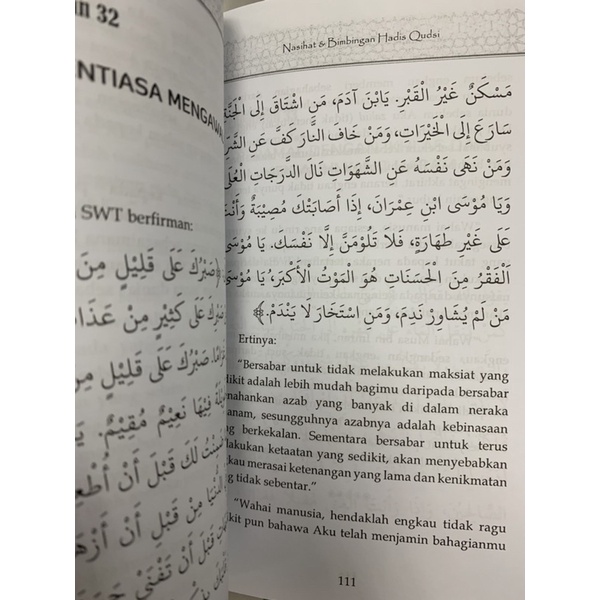 32
NTIASA MENGAWA
SWT berfirman:
﴿صَبْرُكَ عَلَى قَلِيْلٍ مِنَ
صَبْرُكَ عَلَى كَثِيْرٍ مِنْ عَذَا
صَبْرُكَ عَلَى قَلِيْلٍ مِنَ
فِيْهَا نَعِيْمٌ مُقِيْمٌ. يَا
لَكَ قَبْلَ أَنْ
مِنْ قَبْلِ أَنْ
قَبْلَ أَنْ تَفْنَى
Nasihat & Bimbingan Hadis Qudsi
مَسْكَنٌ غَيْرُ الْقَبْرِ. يَابْنَ آدَمَ، مَنِ اشْتَاقَ إِلَى الْجَنَّةِ
سَارَعَ إِلَى الْخَيْرَاتِ، وَمَنْ خَافَ النَّارَ كَفَّ عَنِ الشَّرِّ
وَمَنْ نَهَى نَفْسَهُ عَنِ الشَّهَوَاتِ نَالَ الدَّرَجَاتِ الْعُلَى
وَيَا مُوْسَى ابْنِ عِمْرَانَ، إِذَا أَصَابَتْكَ مُصِيْبَةٌ وَأَنْتَ
عَلَى غَيْرِ طَهَارَةٍ، فَلَا تَلُوْمَنَّ إِلَّا نَفْسَكَ. يَا مُوْسَى
اَلْفَقْرُ مِنَ الْحَسَنَاتِ هُوَ الْمَوْتُ الْأَكْبَرُ، يَا مُوْسَى
مَنْ لَمْ يُشَاوِرْ نَدِمَ، وَمَنِ اسْتَخَارَ لَا يَنْدَمُ.﴾
Ertinya:
"Bersabar untuk tidak melakukan maksiat yang
dikit adalah lebih mudah bagimu daripada bersabar
nahankan azab yang banyak di dalam neraka
anam, sesungguhnya azabnya adalah kebinasaan
ng berkekalan. Sementara bersabar untuk terus
lakukan ketaatan yang sedikit, akan menyebabkan
kau merasai ketenangan yang lama dan kenikmatan
g tidak sebentar."
"Wahai manusia, hendaklah engkau tidak ragu
ikit pun bahawa Aku telah menjamin bahagianmu
111